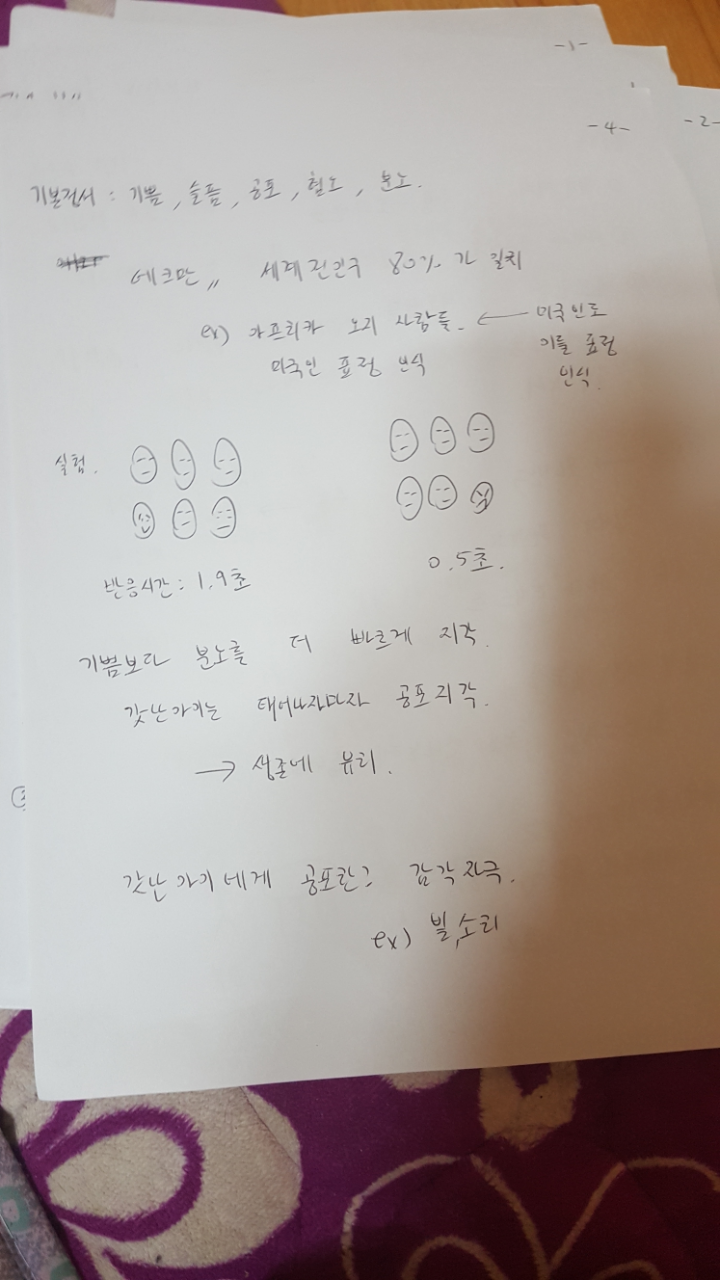 -1-
-4-
-2-
기본정서 : 기쁨, 슬픔, 공포, 혐오, 분노.
에크만,, 세계 전인구 80% 가 일치
ex) 아프리카 오지 사람들. ← 미국인도
미국인 표정 인식
이들 표정
인식.
실험.
반응시간 : 1.9초
0.5초.
기쁨보다 분노를 더 빠르게 지각.
갓난아기는 태어나자마자 공포지각.
→ 생존에 유리.
갓난 아기에게 공포란? 감각자극.
ex) 빛, 소리